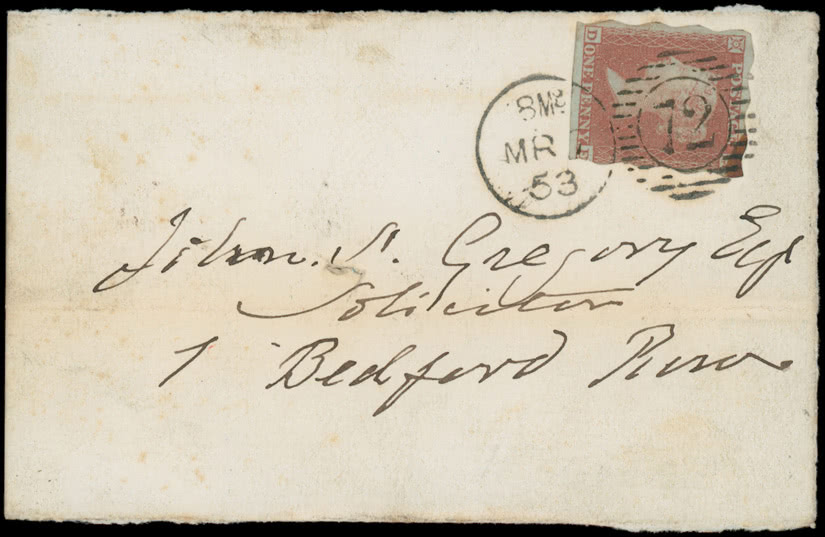 D ONE PENNY E
POSTAGE
8 Mg
MR
53
12
John S. Gregory Esq
Solicitor
1 Bedford Row